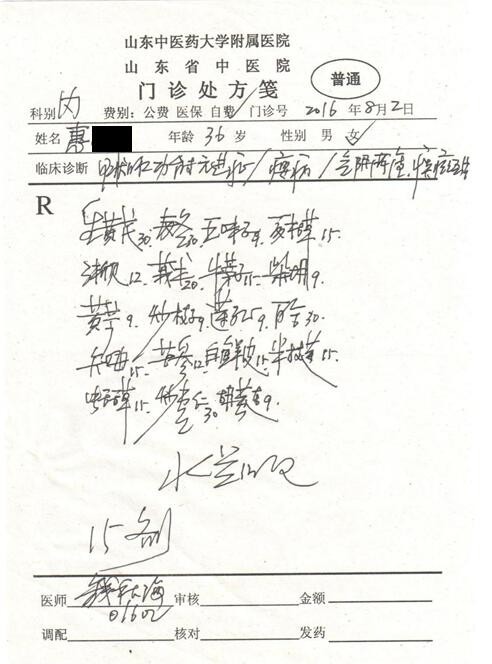 山东中医药大学附属医院
山东省中医院
普通
门诊处方笺
科别 内 费别：公费 医保 自费✓ 门诊号 2016 年 8 月 2 日
姓名 惠 年龄 36 岁 性别 男 女✓
临床诊断 甲状腺功能亢进症/瘿病/气阴两虚
R
生黄芪30 麦冬20 五味子9 夏枯草15
12 20 牛蒡子15 柴胡9
黄芩9 炒栀子9 莲子心9 百合30
知母15 苦参12 白鲜皮15 半枝莲15
15 炒枣仁30 9
水煎服
15剂
医师 海 审核 金额
01602
调配 核对 发药